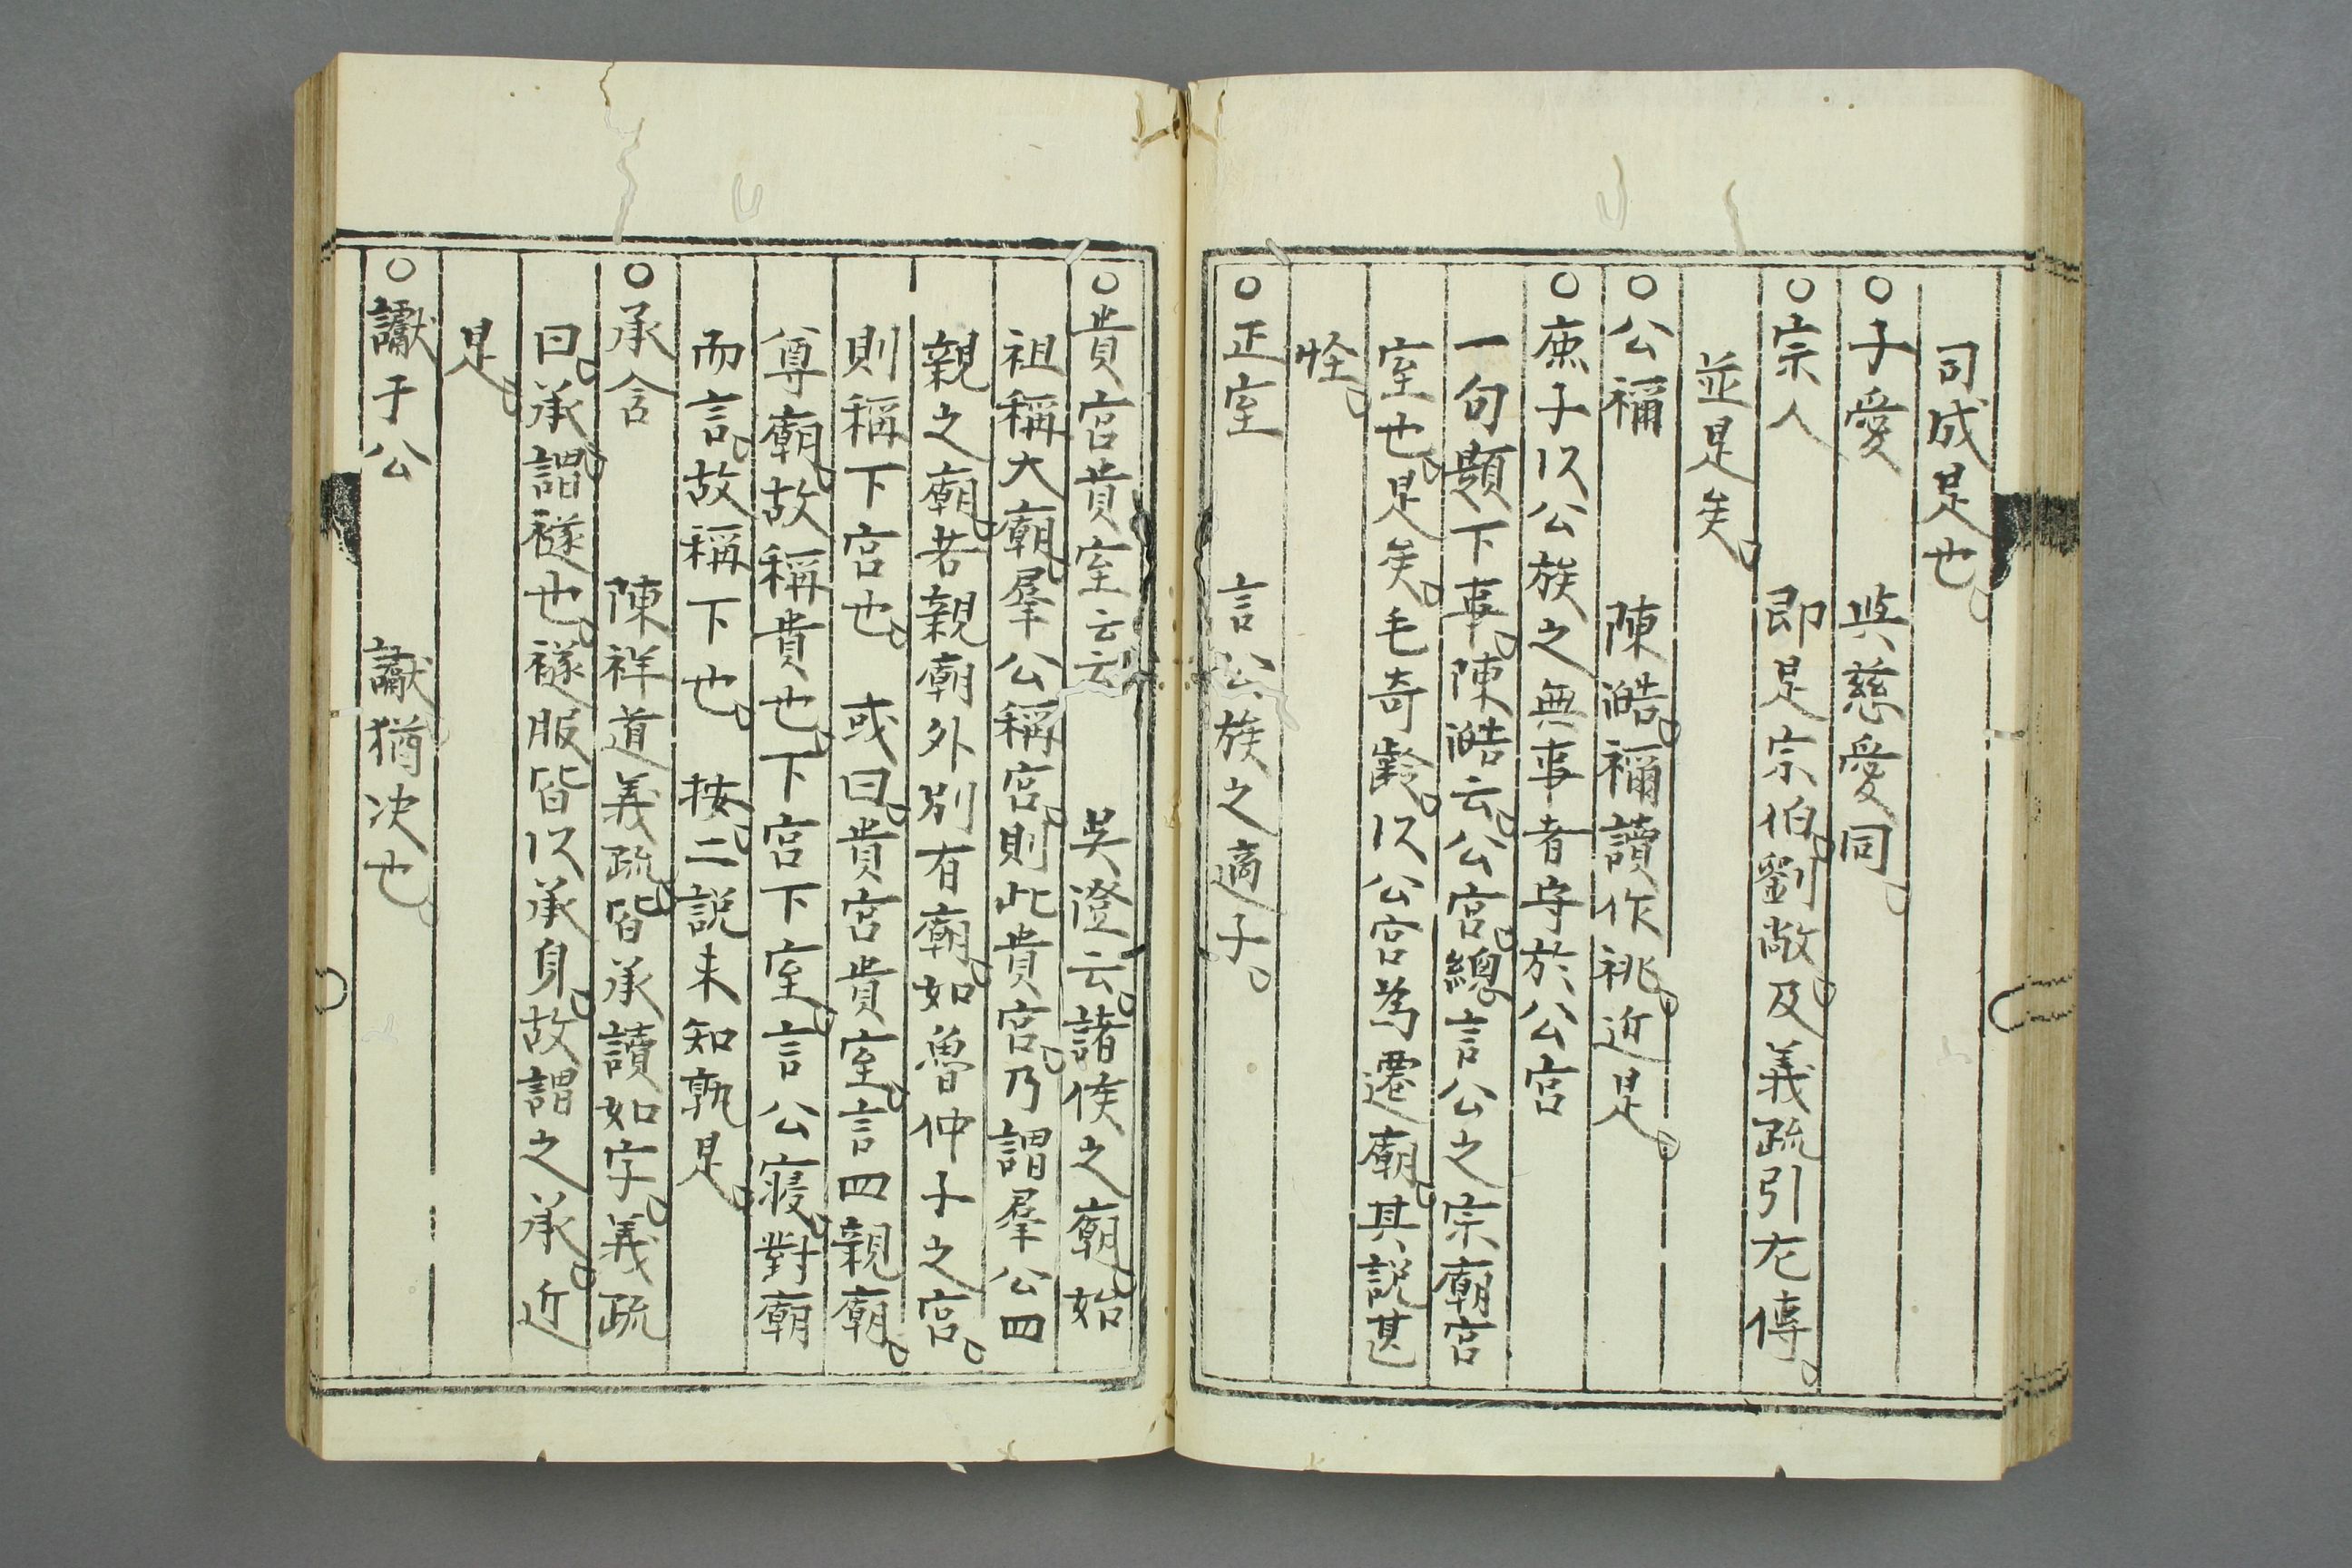 司成是也。
○子愛　與慈愛同。
○宗人　即是宗伯。劉敞及義疏引左傳。
並是矣。
○公禰　陳澔。禰讀作祧。近是。
○庶子以公族之無事者守於公宮
一句題下事。陳澔云。公宮。總言公之宗廟宮
室也。是矣。毛奇齡。以公宮為遷廟。其說甚
怪。
○正室　言公族之適子。
○貴宮貴室云云　吳澄云。諸侯之廟。始
祖稱大廟。羣公稱宮。則此貴宮。乃謂羣公四
親之廟。若親廟外別有廟。如魯仲子之宮。
則稱下宮也。　或曰。貴宮貴室。言四親廟。
尊廟。故稱貴也。下宮下室。言公寢。對廟
而言。故稱下也。　按。二說未知孰是。
○承含　陳祥道義疏。皆承讀如字。義疏
曰。承。謂襚也。襚服皆以承身。故謂之承。近
是。
○讞于公　讞猶决也。